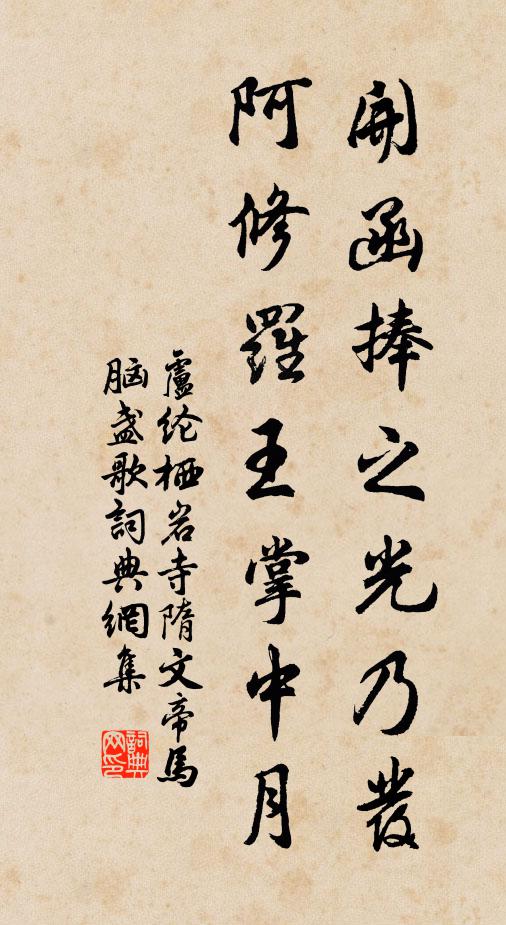 開函捧之光乃發
阿修羅王掌中月
盧纶栖岩寺隋文帝馬
脑盏歌詞典網集
詞典网印